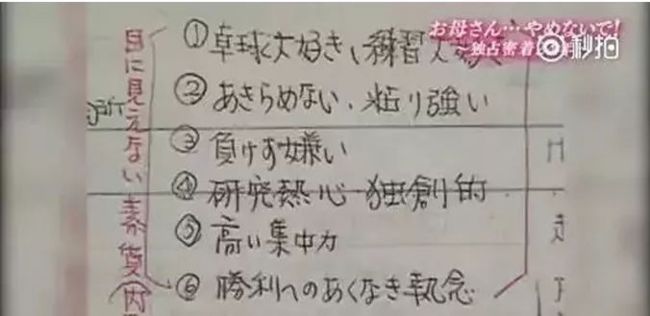 お母さん…やめないで!
独占密着
秒拍
目に見えない素質(内
①卓球大好き、練習大
②あきらめない、粘り強い
③負けず嫌い
④研究熱心・独創的
⑤高い集中力
⑥勝利へのあくなき執念